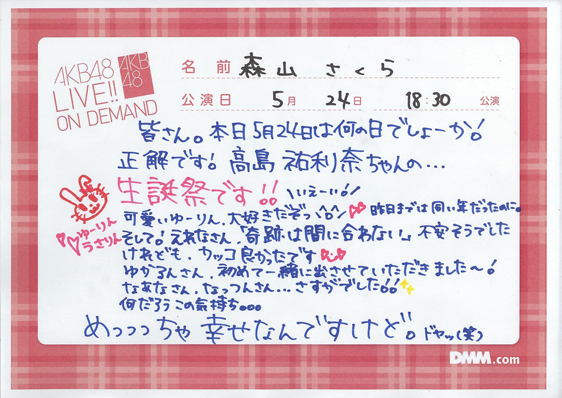 AKB48
LIVE!!
ON DEMAND
AKB
48
名前 森山 さくら
公演日 5月 24日 18:30 公演
皆さん。本日5月24日は何の日でしょーか!
正解です! 高島祐利奈ちゃんの…
生誕祭です!! いぇーい!
ゆーりん
うさりん
可愛いゆーりん、大好きだぞっ 昨日までは同い年だったのに。
そして! えれなさん、「奇跡は間に合わない」不安そうでした
けれども、カッコ良かったです
ゆかるんさん、初めて一緒に出させていただきました〜!
なぁなさん、なっつんさん… さすがでした!!
何だろうこの気持ち。。。
めっっっちゃ幸せなんですけど。ドヤッ(笑)
DMM.com